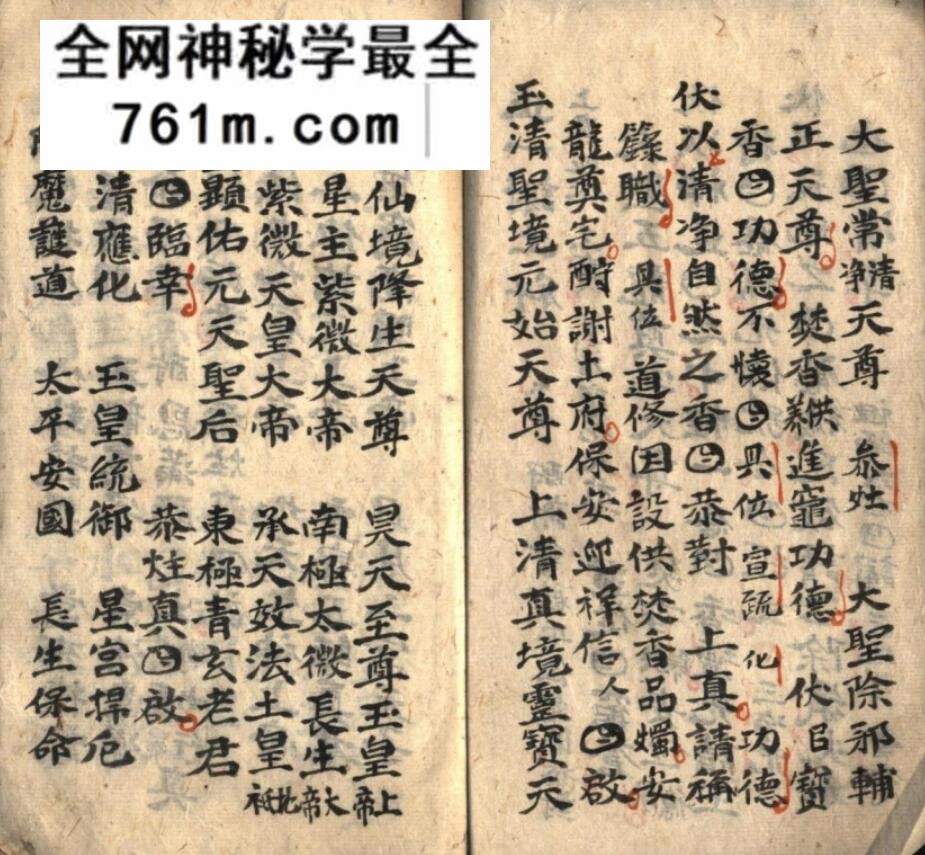 全网神秘学最全
761m.com
大聖常清淨天尊 恭炷 大聖除邪輔
正天尊 焚香供養進竈功德 伏㠯 寶
香 功德不懷 具位 宣疏 化 功德
伏以清净自然之香 恭對 上真請稱
籙職 具位 道修因設供焚香品燭安
龍奠宅酧謝土府保安迎祥信人 啟
玉清聖境元始天尊 上清真境靈寶天
仙境降生天尊 昊天至尊玉皇上帝
星主紫微大帝 南極太微長生大帝
紫微天皇大帝 承天效法土皇地祇
顯佑元天聖后 東極青玄老君
臨幸 恭炷真 啟
清應化 玉皇統御 星宮捍厄
魔護道 太平安國 長生保命